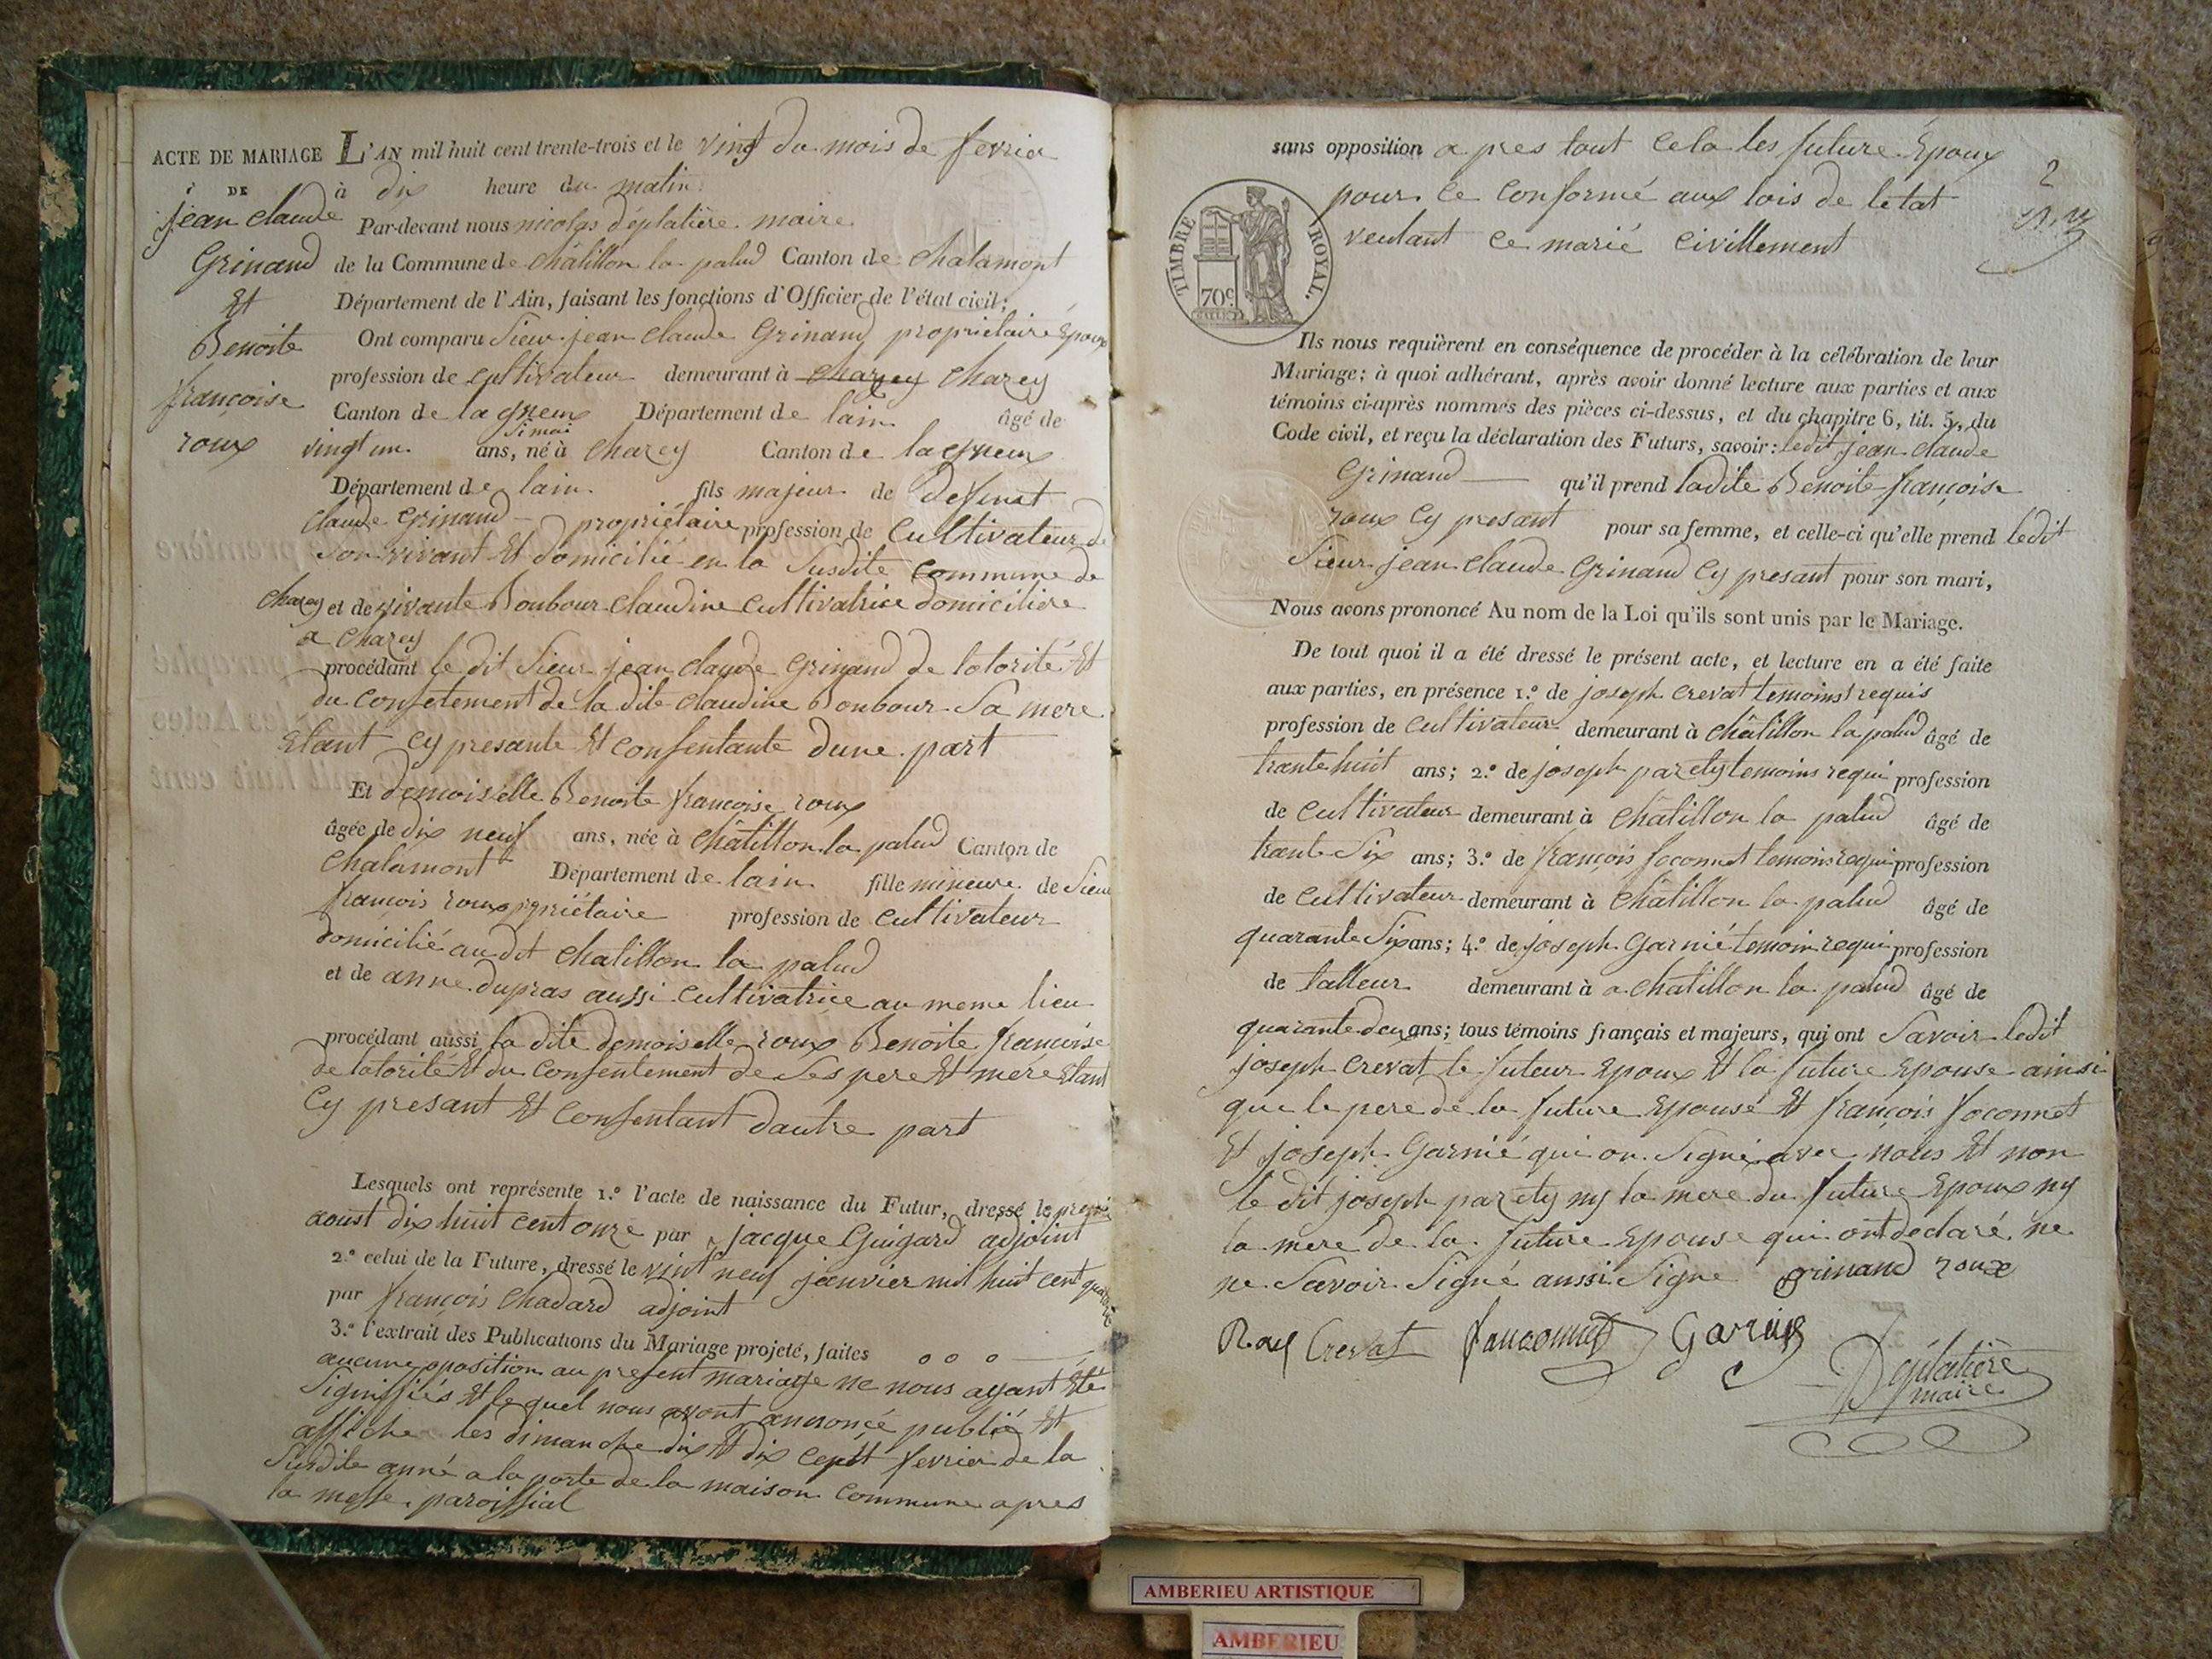 ACTE DE MARIAGE L'AN mil huit cent trente-trois et le vingt du mois de fevrier
DE à dix heure du matin
jean claude Par-devant nous nicolas déplatière maire
Grinand de la Commune de châtillon la palud Canton de chalamont
Et Département de l'Ain, faisant les fonctions d'Officier de l'état civil;
Benoite Ont comparu Sieur jean claude Grinand propriétaire Epoux
profession de cultivateur demeurant à charey
françoise Canton de lagneux Département de lain âgé de
Simoi
roux vingt un ans, né à charey Canton de lagneux
Département de lain fils majeur de defunt
claude Grinand propriétaire profession de Cultivateur de
Son vivant Et domicilié en la Susdite commune de
charey et de vivante Bonbour claudine cultivatrice domicilière
a charey
procédant le dit Sieur jean claude Grinand de lotorité Et
du consetement de la dite claudine Bonbour Sa mere
Etant cy presante Et consentante dune part
Et demoiselle Benoite françoise roux
âgée de dix neuf ans, née à châtillon la palud Canton de
chalamont Département de lain fille mineure de Sieur
françois roux propriétaire profession de cultivateur
domicilié audit chatillon la palud
et de anne dupras aussi cultivatrice au meme lieu
procédant aussi la dite demoiselle roux Benoite françoise
de lotorité Et du consentement de Ses pere Et mere Etant
Cy presant Et Consentant dautre part
Lesquels ont représente 1.º l'acte de naissance du Futur, dressé le premier
aoust dix huit cent onze par jacque Guigard adjoint
2.º celui de la Future, dressé le vint neuf janvier mil huit cent
par françois Chadard adjoint
3.º l'extrait des Publications du Mariage projeté, faites
aucune oposition au present mariage ne nous ayant Eté
Signifiés Et lequel nous avont annoncé publié Et
affiche les dimanche dix Et dix cept fevrier de la
Susdite anné a la porte de la maison commune apres
la messe paroissial
sans opposition a pres tout cela les future Epoux
2
pour ce conformé aux lois de letat
veulant ce marié civillement
TIMBRE ROYAL.
70c
Ils nous requièrent en conséquence de procéder à la célébration de leur
Mariage; à quoi adhérant, après avoir donné lecture aux parties et aux
témoins ci-après nommés des pièces ci-dessus, et du chapitre 6, tit. 5, du
Code civil, et reçu la déclaration des Futurs, savoir: ledit jean claude
Grinand qu'il prend ladite Benoite françoise
roux cy presant pour sa femme, et celle-ci qu'elle prend ledit
Sieur jean claude Grinand cy presant pour son mari,
Nous avons prononcé Au nom de la Loi qu'ils sont unis par le Mariage.
De tout quoi il a été dressé le présent acte, et lecture en a été faite
aux parties, en présence 1.º de joseph crevat temoins requis
profession de cultivateur demeurant à châtillon la palud âgé de
trante huit ans; 2.º de joseph parety temoins requi profession
de cultivateur demeurant à châtillon la palud âgé de
trante Six ans; 3.º de françois foconnet temoins requi profession
de cultivateur demeurant à châtillon la palud âgé de
quarante Six ans; 4.º de joseph Garnié temoin requi profession
de talleur demeurant à a chatillon la palud âgé de
quarante deux ans; tous témoins français et majeurs, qui ont Savoir ledit
joseph crevat le futeur Epoux Et la future Epouse ainsi
que le pere de la future Epousé Et françois foconnet
Et joseph Garnié qui on Signé avec nous Et non
le dit joseph parety ny la mere du future Epoux ny
la mere de la future Epouse qui ont declaré ne
ne Savoir Signé aussi Signe grinand roux
Roux Crevat fauconnet Garnier
Déplatière
maire
AMBERIEU ARTISTIQUE
AMBERIEU